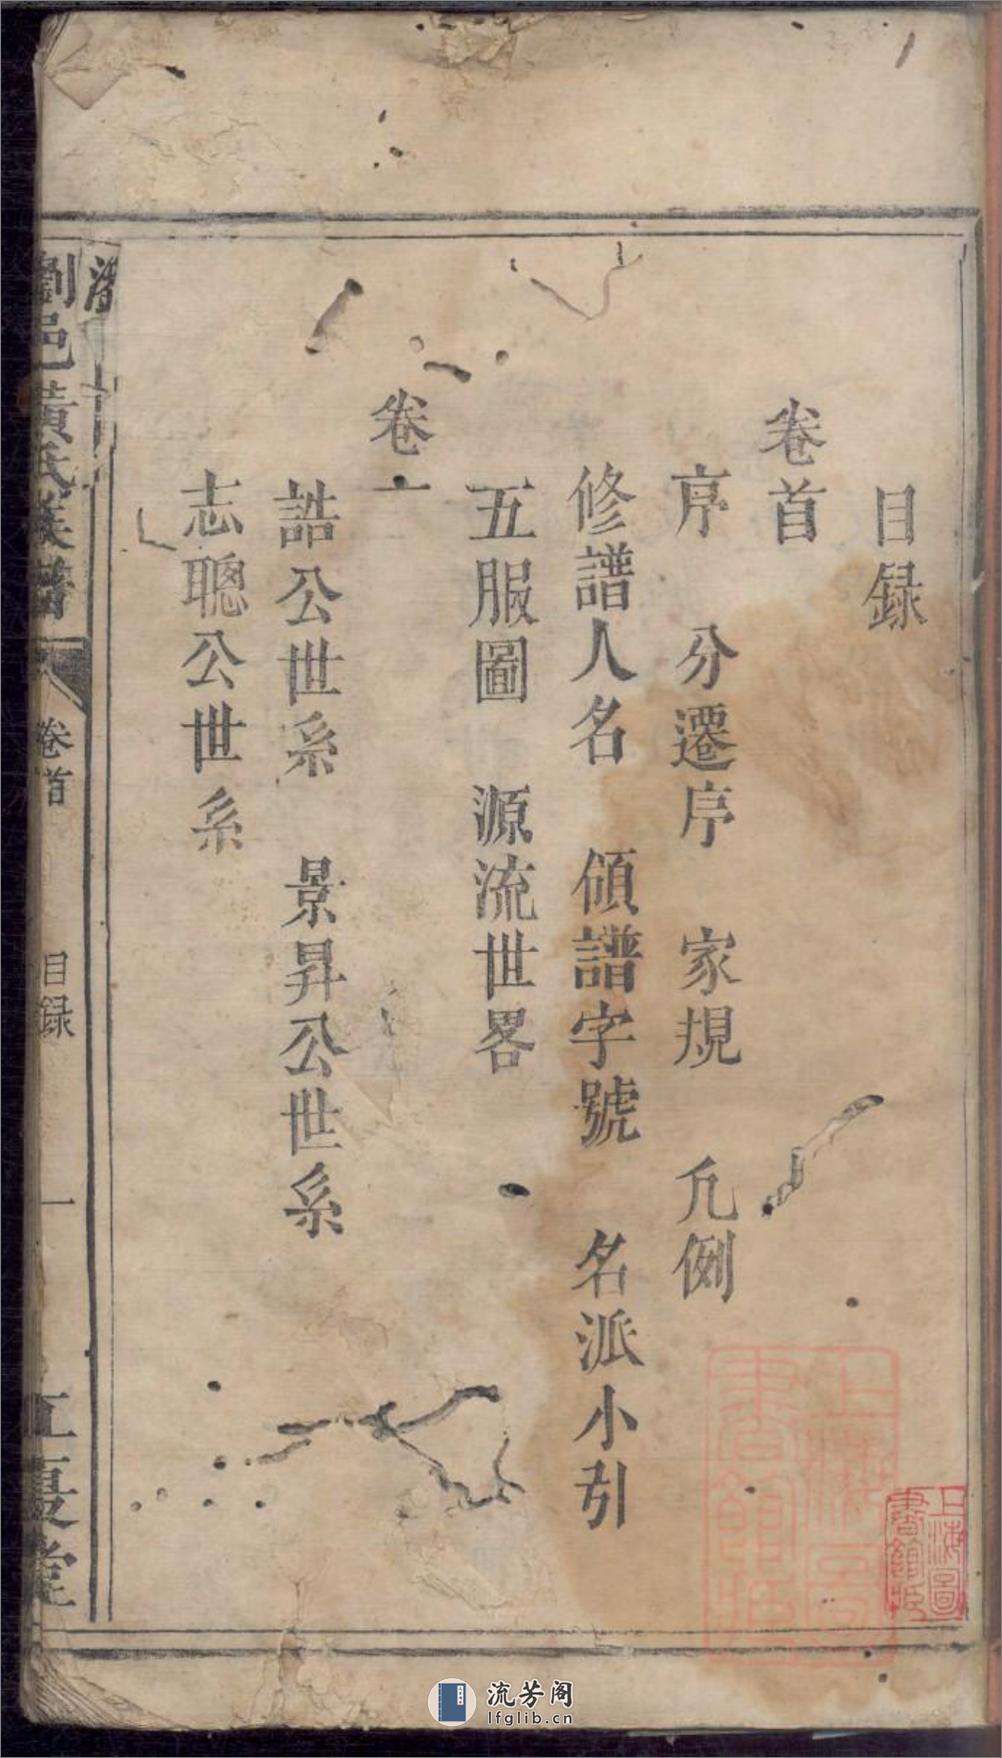 目録
卷首
序 分遷序 家規 凡例
修譜人名 領譜字號 名派小引
五服圖 源流世畧
卷一
誥公世系 景昇公世系
志聰公世系
劉邑黃氏族譜 卷首 目録 一
上海圖書館藏
上海圖書館藏
流芳阁
lfglib.cn